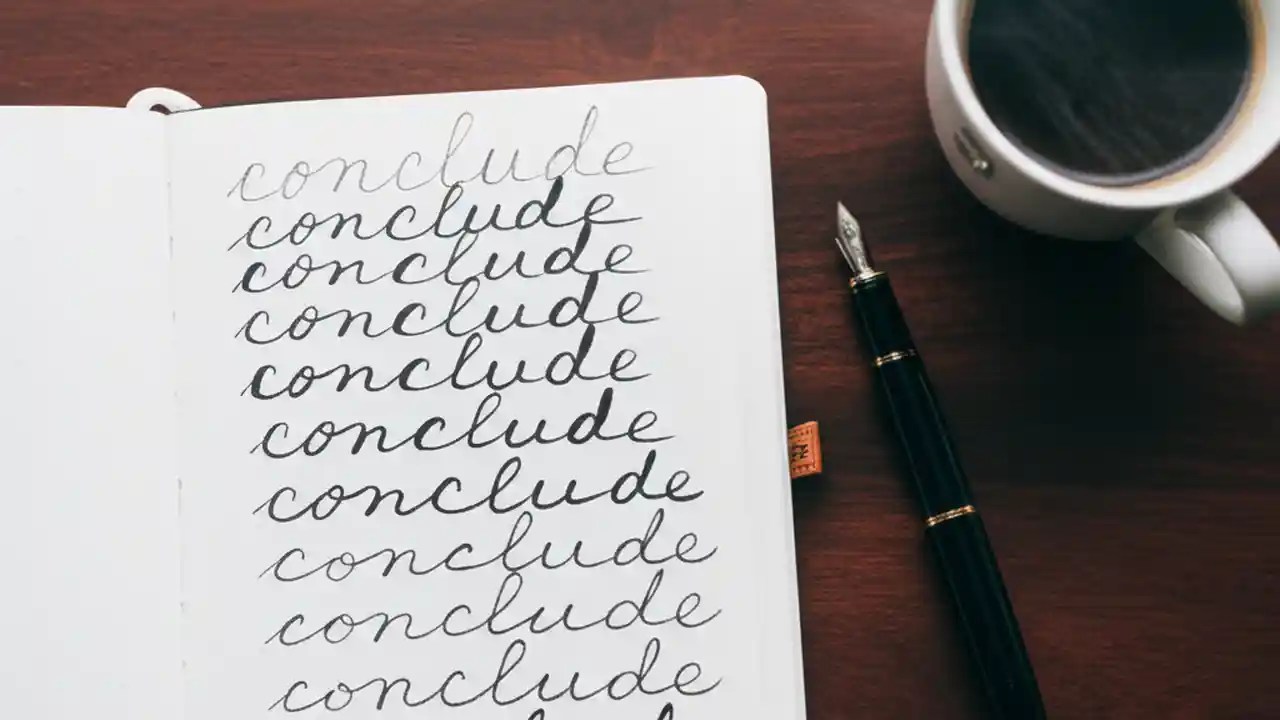 conclude
conclude
conclude
conclude
conclude
conclude
conclude
conclude
conclude
conclude